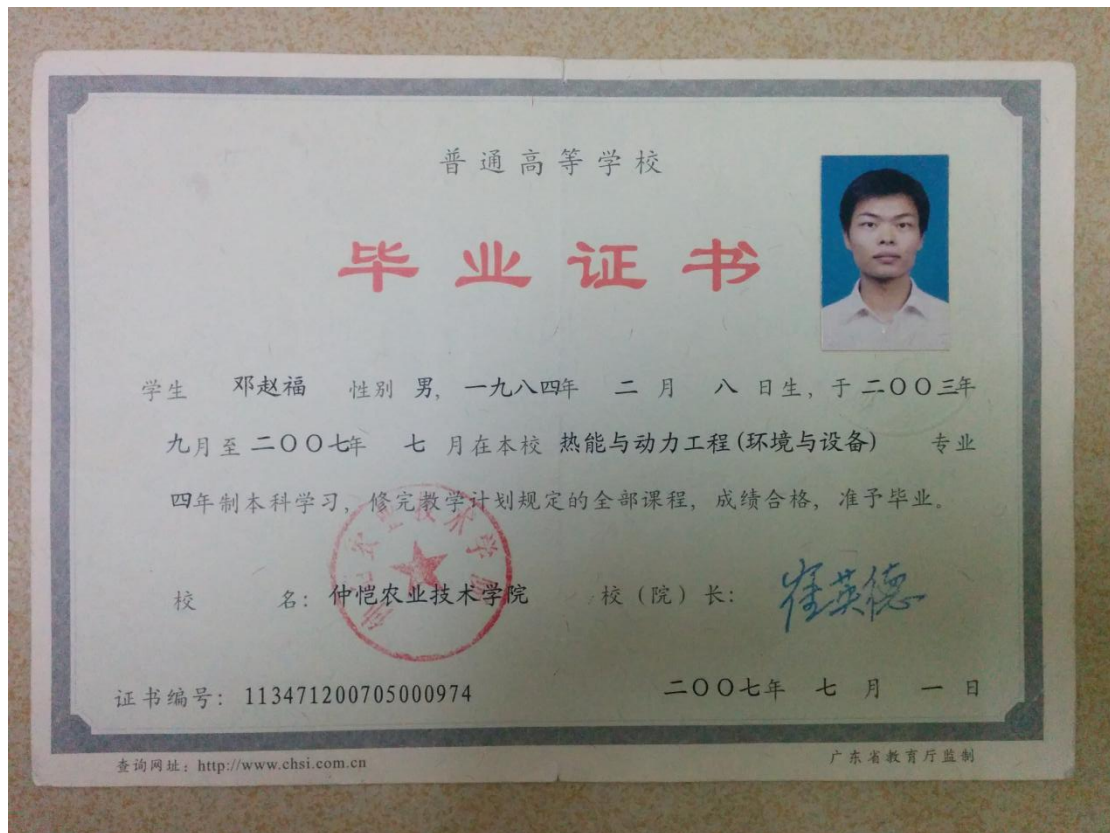 普通高等学校
毕业证书
学生 邓赵福 性别 男, 一九八四年 二 月 八 日生, 于 二〇〇三年
九月至 二〇〇七年 七 月在本校 热能与动力工程(环境与设备) 专业
四年制本科学习, 修完教学计划规定的全部课程, 成绩合格, 准予毕业。
校 名: 仲恺农业技术学院 校(院)长: 崔英德
证书编号: 113471200705000974 二〇〇七年 七 月 一 日
查询网址: http://www.chsi.com.cn 广东省教育厅监制